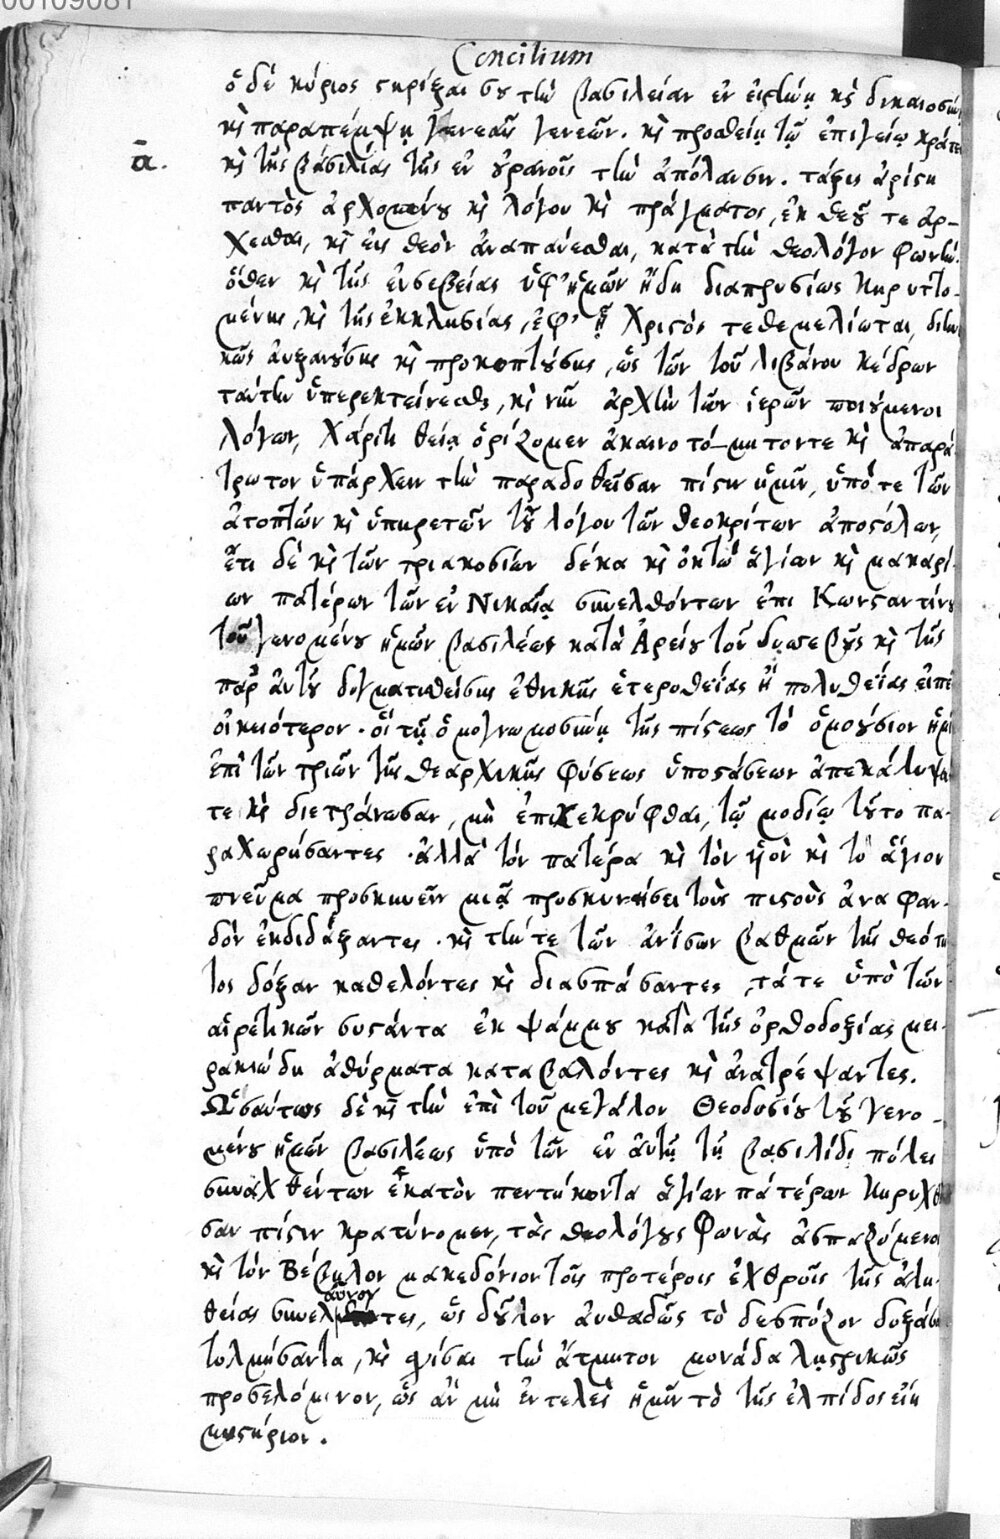 00109081
Concilium
ὁ δὲ κύριος στηρίξαι σου τὴν βασιλείαν ἐν εἰρήνῃ κ̀ δικαιοσύνῃ
κ̀ παραπέμψῃ γενεαῖς γενεῶν. κ̀ προσθείη τῷ ἐπιγείῳ κράτει
ᾱ. κ̀ τῆς βασιλείας τῆς ἐν οὐρανοῖς τὴν ἀπόλαυσιν. τάξις ἀρίστη
παντὸς ἀρχομένου κ̀ λόγου κ̀ πράγματος, ἐκ θεοῦ τε ἄρ-
χεσθαι, κ̀ εἰς θεὸν ἀναπαύεσθαι, κατὰ τὴν θεολόγον φωνήν.
ὅθεν κ̀ τῆς εὐσεβείας ὑφ' ἡμῶν ἤδη διαπρυσίως κηρυττο-
μένης, κ̀ τῆς ἐκκλησίας, ἐφ' ᾗ Χριστὸς τεθεμελίωται, διην
κῶς αὐξανούσης κ̀ προκοπτούσης, ὡς τῶν τοῦ λιβάνου κέδρων
ταύτην ὑπερεκτείνεσθαι, κ̀ νῦν ἀρχὴν τῶν ἱερῶν ποιούμενοι
λόγων, χάριτι θείᾳ ὁρίζομεν ἀκαινοτόμητον τε κ̀ ἀπαρά
τρωτον ὑπάρχειν τὴν παραδοθεῖσαν πίστιν ἡμῖν, ὑπό τε τῶν
ἀτοπτῶν κ̀ ὑπηρετῶν τοῦ λόγου τῶν θεοκρίτων ἀποστόλων,
ἔτι δὲ κ̀ τῶν τριακοσίων δέκα κ̀ ὀκτὼ ἁγίων κ̀ μακαρί-
ων πατέρων τῶν ἐν Νικαίᾳ συνελθόντων ἐπι Κωνσταντίνου
τοῦ γενομένου ἡμῶν βασιλέως κατὰ Ἀρείου τοῦ δυσσεβοῦς κ̀ τῆς
παρ' αὐτοῦ δογματισθείσης ἐθνικῆς ἑτεροθεΐας ἢ πολυθεΐας εἰπεῖ
οἰκειότερον. οἳ τῇ ὁμογνωμοσύνῃ τῆς πίστεως τὸ ὁμοούσιον ἡμῖ
ἐπὶ τῶν τριῶν τῆς θεαρχικῆς φύσεως ὑποστάσεων ἀπεκάλυψα
τε κ̀ διετράνωσαν, μὴ ἐπικεκρύφθαι, τῷ μοδίῳ τοῦτο πα-
ραχωρήσαντες. ἀλλὰ τὸν πατέρα κ̀ τὸν υἱὸν κ̀ τὸ ἅγιον
πνεῦμα προσκυνεῖν μιᾷ προσκυνήσει τοὺς πιστοὺς ἀναφαν-
δὸν ἐκδιδάξαντες. κ̀ τήν τε τῶν ἀνίσων βαθμῶν τῆς θεότη
τος δόξαν καθελόντες κ̀ διασπάσαντες, τά τε ὑπὸ τῶν
αἱρετικῶν συστάντα ἐκ ψάμμου κατὰ τῆς ὀρθοδοξίας μει-
ρακιώδη ἀθύρματα καταβαλόντες κ̀ ἀνατρέψαντες.
Ὡσαύτως δὲ κ̀ τὴν ἐπὶ τοῦ μεγάλου Θεοδοσίου τοῦ γενο-
μένου ἡμῶν βασιλέως ὑπὸ τῶν ἐν αὐτῇ τῇ βασιλίδι πόλει
συναχθέντων ἑκατὸν πεντήκοντα ἁγίων πατέρων κηρυχθεῖ
σαν πίστιν κρατύνομεν, τὰς θεολόγους φωνὰς ἀσπαζόμενοι
κ̀ τὸν βέβηλον μακεδόνιον τοῖς προτέροις ἐχθροῖς τῆς ἀλη-
θείας συνελαύνοντες, ὡς δοῦλον αὐθαδῶς τὸ δεσπόζον δοξάσαι
τολμήσαντα, κ̀ σχίσαι τὴν ἄτμητον μονάδα λῃστρικῶς
προσελόμενον, ὡς ἂν μὴ ἐντελὲς ἡμῖν τὸ τῆς ἐλπίδος εἴη
μυστήριον.